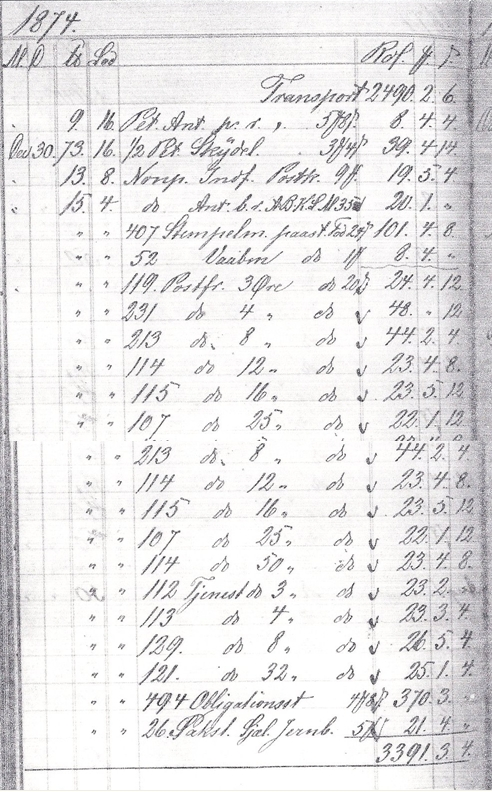 1874.
M. D. ℔ Lod Rdl. ꝟ. ẞ.
Transport 2490. 2. 6.
9. 16. Pet. Ant. p. r. „ 8. 4. 4
Dec 30. 73. 16. 1/2 Pet. Skydel. 39. 4. 14
13. 8. Nonp. Indf. Postk. 19. 5. 4
15. 4. do Ant. b. r. 20. 1. „
„ „ 407 Stempelm. paast. 101. 4. 8.
„ „ 52 Vaabm do 8. 4. „
„ „ 119. Postfr. 3 Øre do 24. 4. 12
„ „ 231 do 4 „ do „ 48. „ 12
„ „ 213 do 8 „ do „ 44. 2. 4.
„ „ 114 do 12 „ do „ 23. 4. 8.
„ „ 115 do 16 „ do „ 23. 5. 12
„ „ 107 do 25 „ do „ 22. 1. 12
„ „ 213 do 8 „ do „ 44. 2. 4
„ „ 114 do 12 „ do „ 23. 4. 8.
„ „ 115 do 16 „ do „ 23. 5. 12
„ „ 107 do 25 „ do „ 22. 1. 12
„ „ 114 do 50 „ do „ 23. 4. 8.
„ „ 112 Tjenest do 3 „ do „ 23. 2. „
„ „ 113 do 4 „ do „ 23. 3. 4.
„ „ 129. do 8 „ do „ 26. 5. 4
„ „ 121. do 32 „ do „ 25. 1. 4
„ „ 494 Obligationsst 370. 3. „
„ „ 26 Pakst. Sjæl. Jernb. 21. 4. „
3391. 3. 4.